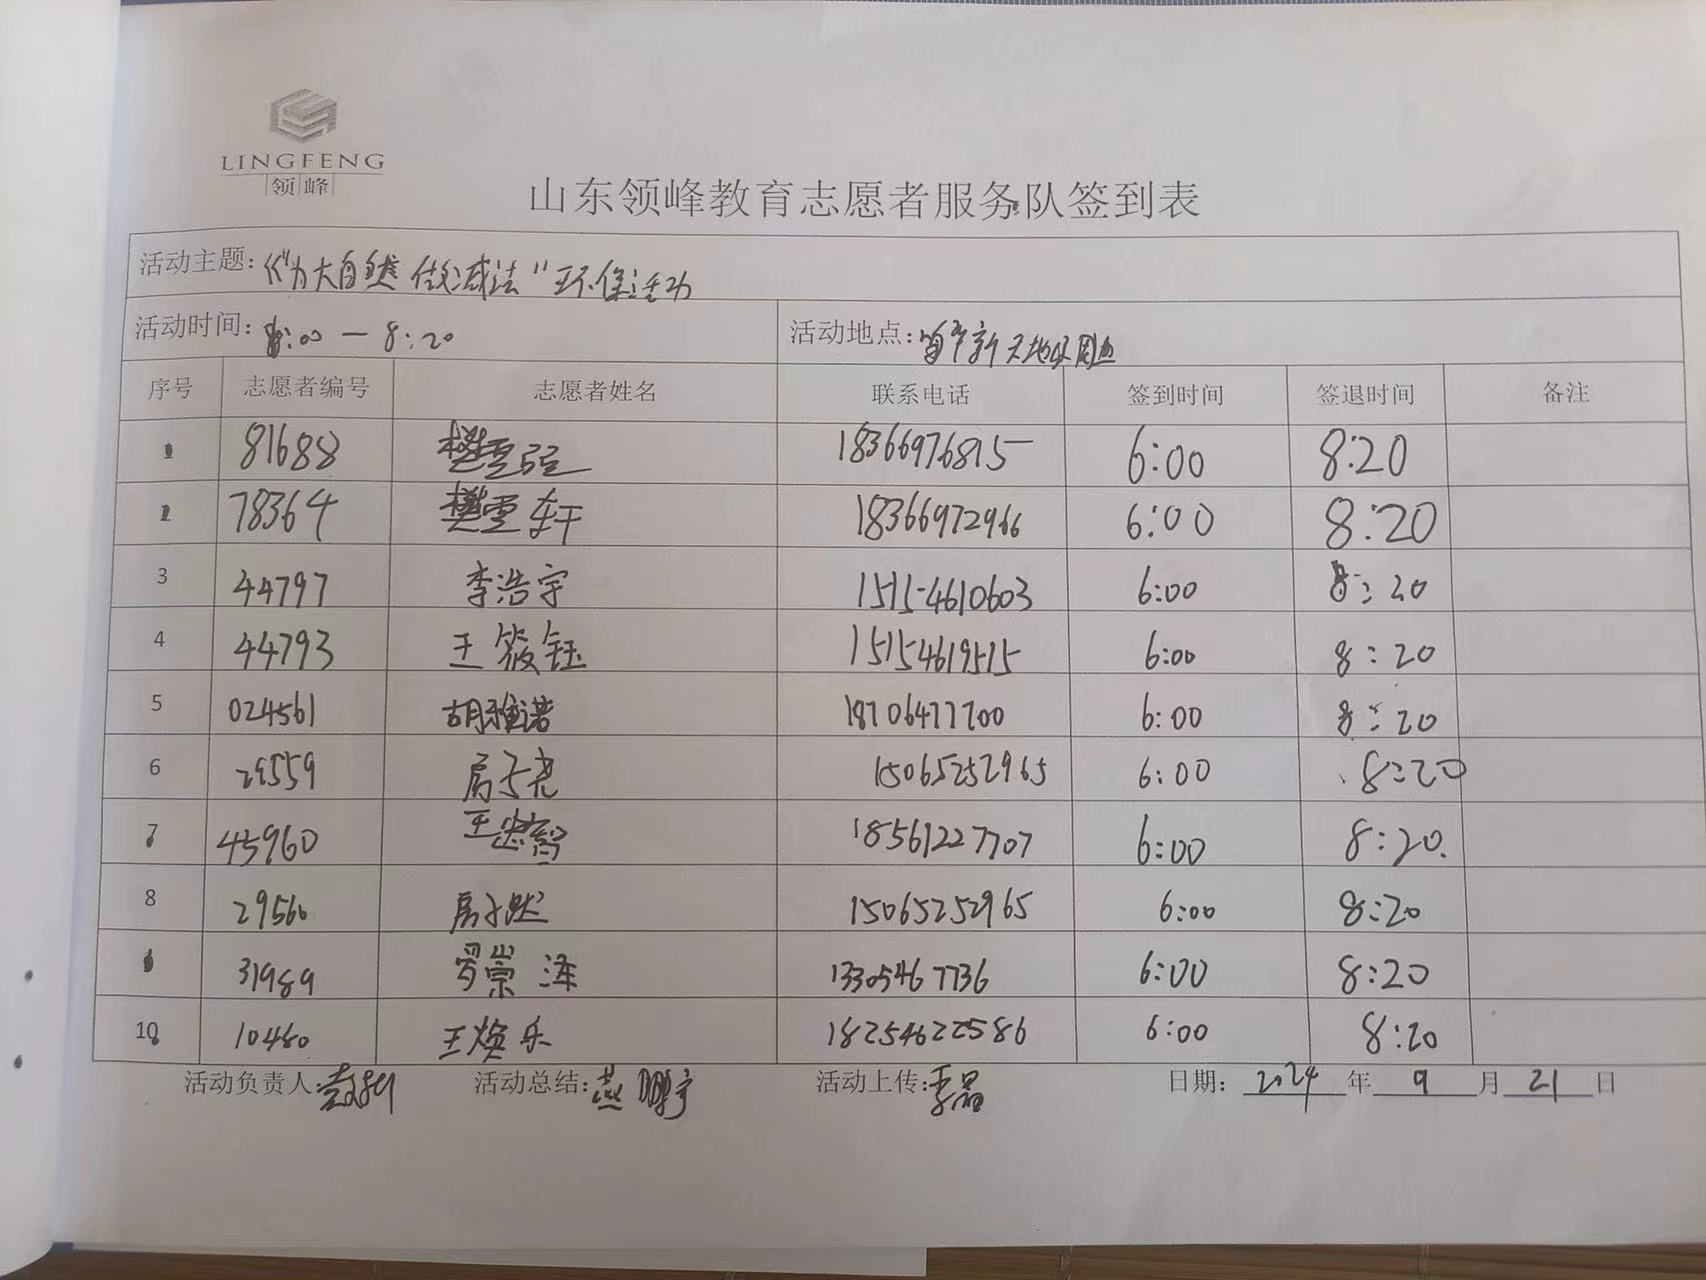 LINGFENG
领峰
山东领峰教育志愿者服务队签到表
活动主题:《“为大自然做减法”环保活动
活动时间: 6:00—8:20 活动地点: 新天地及周边
序号 志愿者编号 志愿者姓名 联系电话 签到时间 签退时间 备注
1 81688 樊雪 18366976815 6:00 8:20
2 78364 樊雪轩 18366972966 6:00 8:20
3 44797 李浩宇 15154610603 6:00 8:20
4 44793 王筱钰 15154619515 6:00 8:20
5 024561 胡雅诺 18706477700 6:00 8:20
6 29559 房子尧 15065252965 6:00 8:20
7 45960 王 18561227707 6:00 8:20.
8 29560 房子 15065252965 6:00 8:20
9 31989 罗崇泽 13305467736 6:00 8:20
10 10480 王焕乐 18254622586 6:00 8:20
活动负责人: 活动总结:燕鹏宇 活动上传:李 日期: 2024 年 9 月 21 日